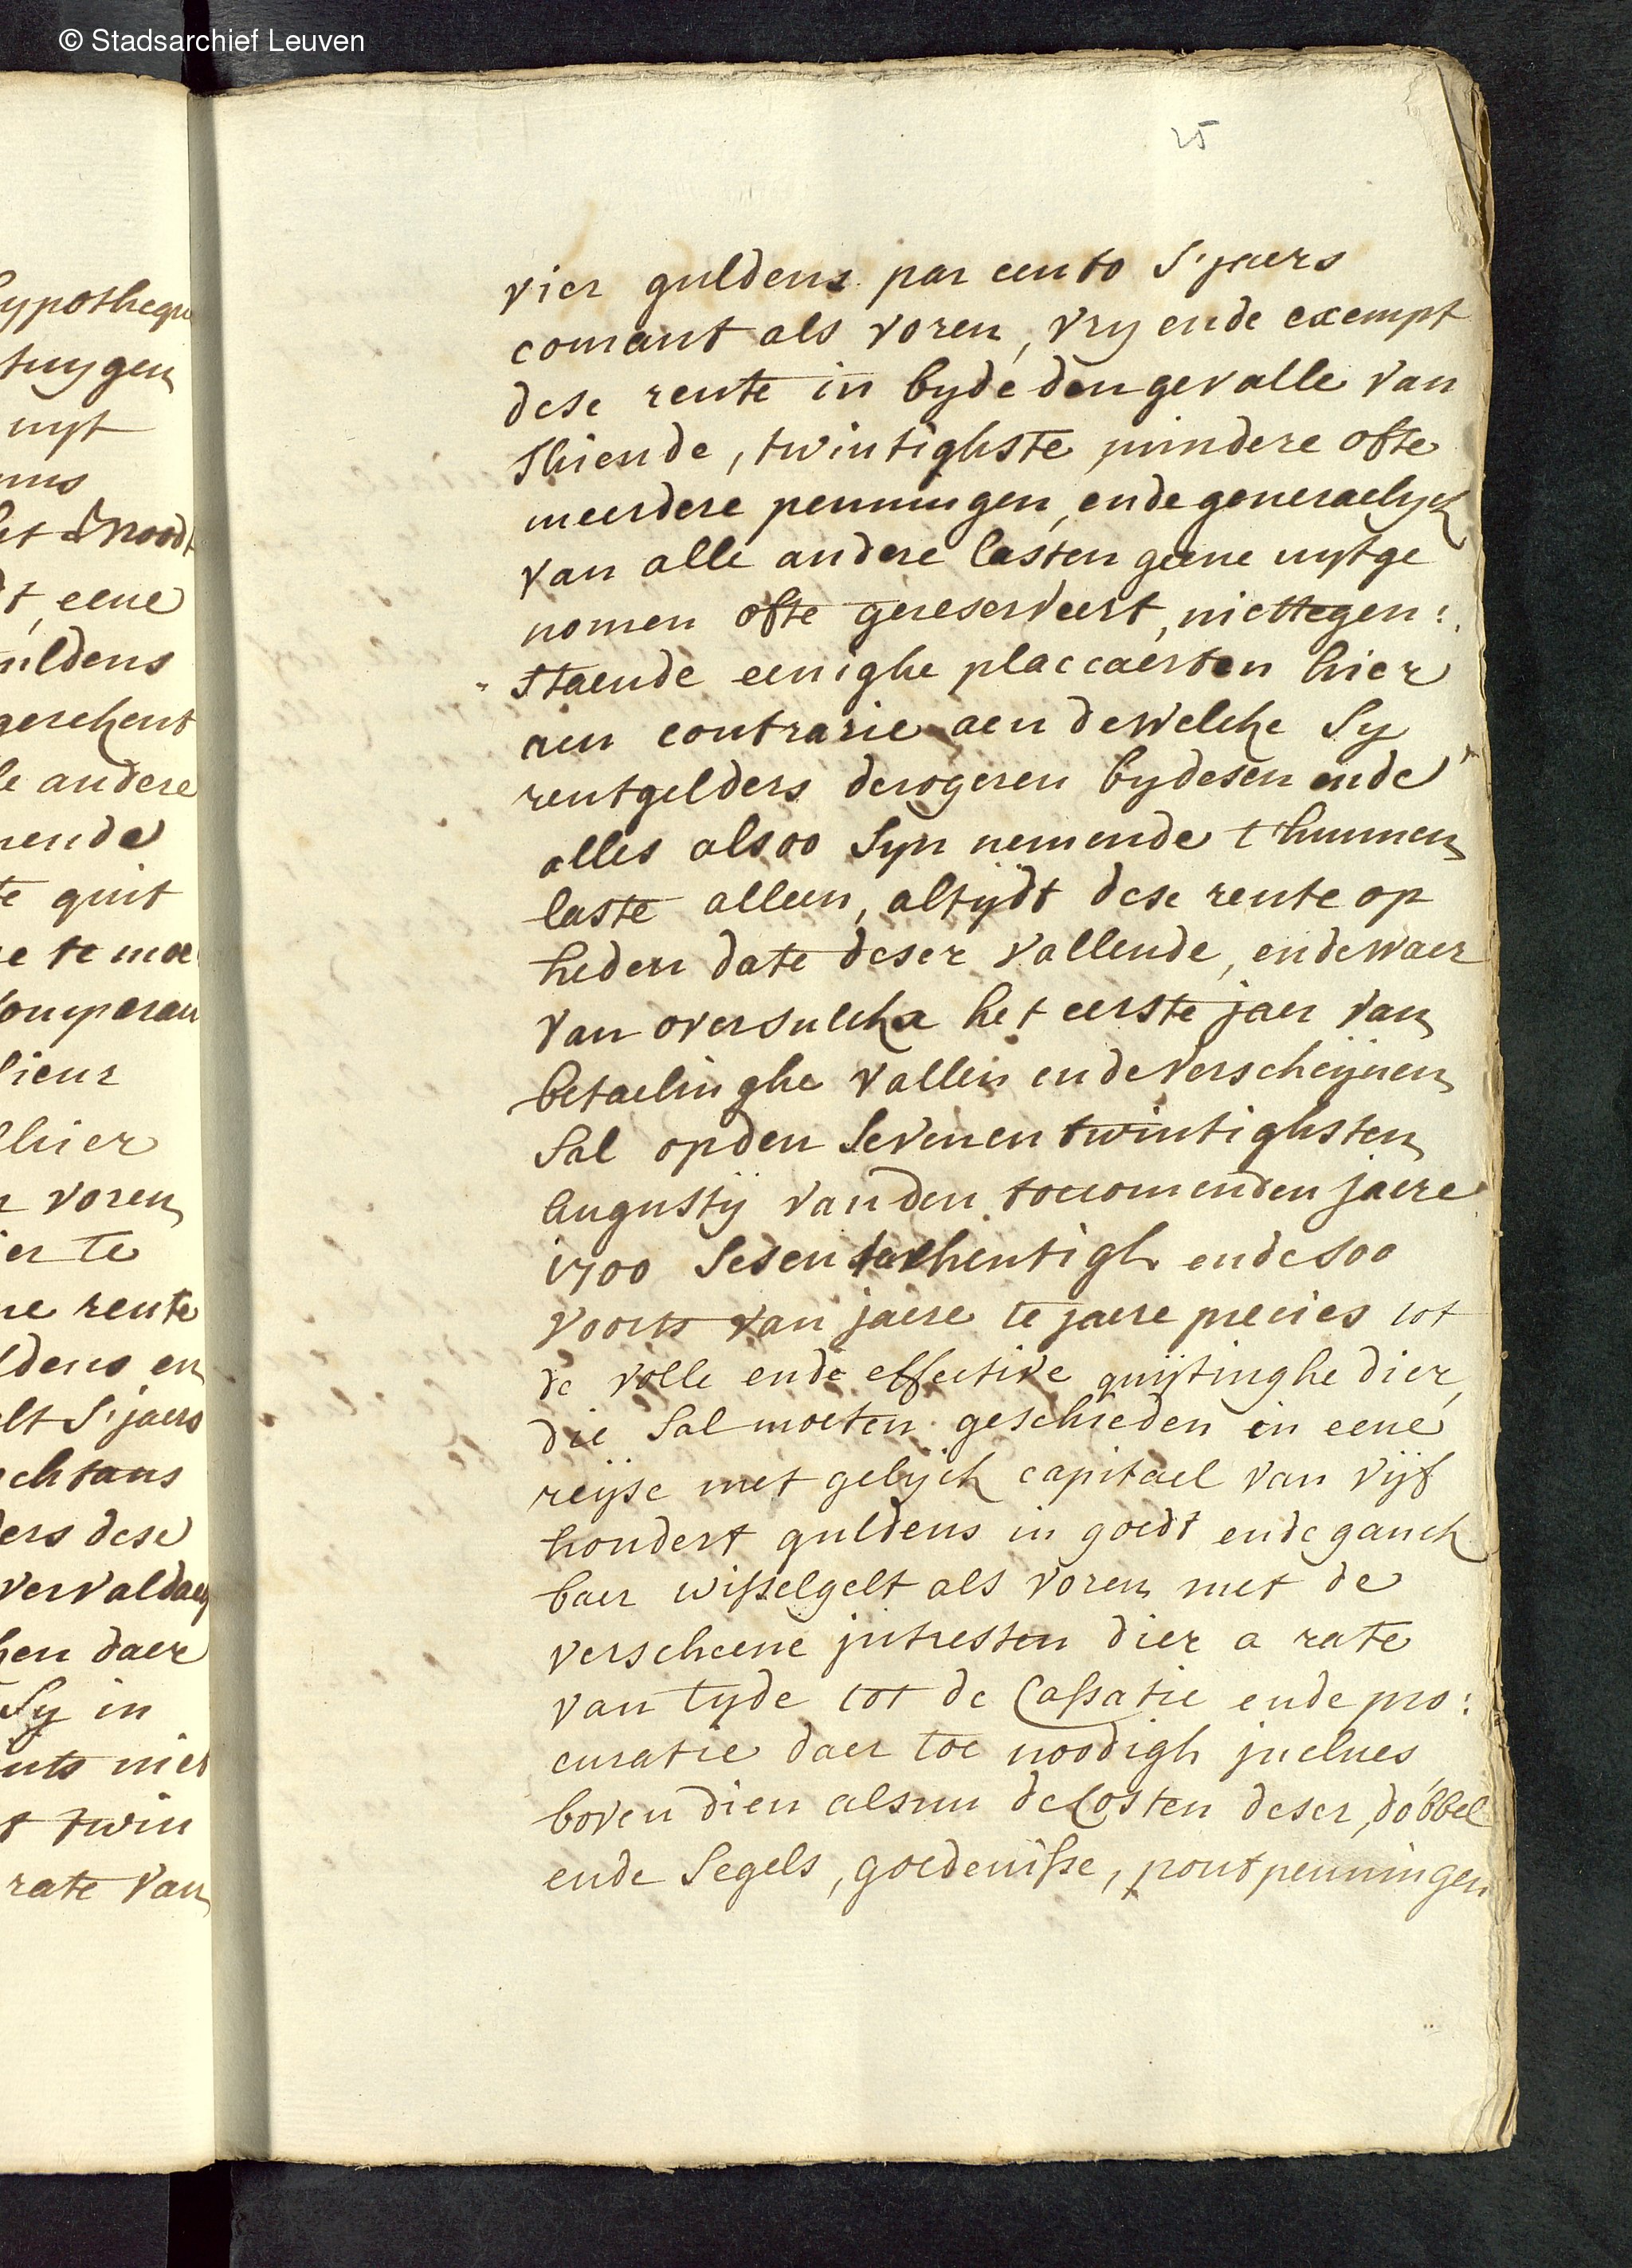 © Stadsarchief Leuven
ypotheque
tuygen
uyt
t eene
uldens
gereckent
e andere
nende
te quit
e te moe
Comparan
lieur
hier
voren
er te
ne rente
ldens en
lt S'jaers
chtans
ers dese
vervaldaeg
en daer
Sy in
nts niet
t twin
rate van
25
vier guldens par cento S'jaers
comant als voren, vry ende exempt
dese rente in byde den gevalle van
thiende, twintighste mindere ofte
meerdere penningen, ende generaelyck
van alle andere lasten geene uytge
nomen ofte gereserveert, niettegen:
staende eenighe placcaerten hier
aen contrarie aen dewelcke Sy
rentgelders derogeren bydesen ende
alles alsoo Syn nemende t'hunnen
laste alleen, altydt dese rente op
heden date deser vallende, ende waer
van oversulckx het eerste jaer van
betaelinghe vallen ende verscheynen
Sal op den Sevenentwintighsten
Augusty van den toecomenden jaere
1700 Sesentachentigh ende soo
voorts van jaere te jaere precies tot
de volle ende effective quytinghe dier,
die Sal moeten geschieden in eene
reyse met gelyck capitael van vyf
hondert guldens in goedt ende ganck
baer wisselgelt als voren met de
verscheene intresten dier a rate
van tyde tot de Cassatie ende pro:
curatie daer toe noodigh incluës
boven dien alsnu de Costen deser, dobbel
ende Segels, goedenisse, pontpenningen